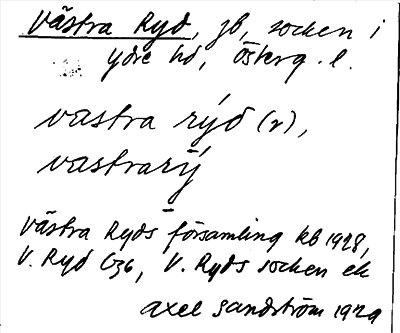 Västra Ryd, jb, socken i
Ydre hd, Österg. l.
vastra rýd (r),
vastrarȳ
Västra Ryds församling kb 1928,
V. Ryd G36, V. Ryds socken ek
Axel Sandström 1929